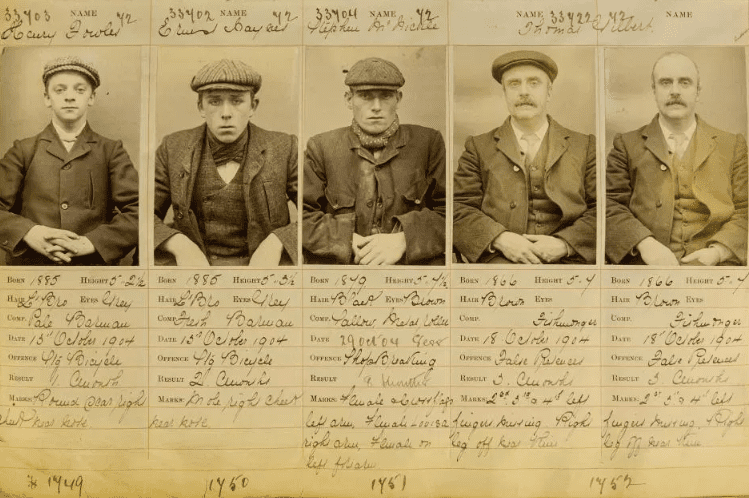 33403 NAME 72
33402 NAME 72
33404 NAME 72
33422 NAME 72
NAME
Henry Fowler
Ernest Haynes
Stephen
Thomas Gilbert
BORN 1885 HEIGHT 5-2½
HAIR L' Bro EYES Grey
COMP. Pale Barman
DATE 15th October 1904
OFFENCE Bicycle
RESULT 1 C. month
MARKS Round scar right
cheek near nose
1749
BORN 1885 HEIGHT 5-3½
HAIR L' Bro EYES Grey
COMP. Fresh Barman
DATE 15th October 1904
OFFENCE Bicycle
RESULT 2 C. months
MARKS Mole right cheek
near nose
1750
BORN HEIGHT 5-4½
HAIR EYES Brown
COMP. Sallow, Metal roller
DATE 29 Oct 04
OFFENCE Shop Breaking
RESULT 9 months
MARKS Female
left arm, Female
right arm, Female on
left
1751
BORN 1866 HEIGHT 5-4
HAIR Brown EYES
COMP. Fishmonger
DATE 18 October 1904
OFFENCE False Pretences
RESULT 3. C. months
MARKS 2nd 3rd & 4th left
fingers missing. Right
leg off near
BORN 1866 HEIGHT 5-4
HAIR Brown EYES
COMP. Fishmonger
DATE 18 October 1904
OFFENCE False Pretences
RESULT 3. C. months
MARKS 2nd 3rd & 4th left
fingers missing. Right
leg off near
1752